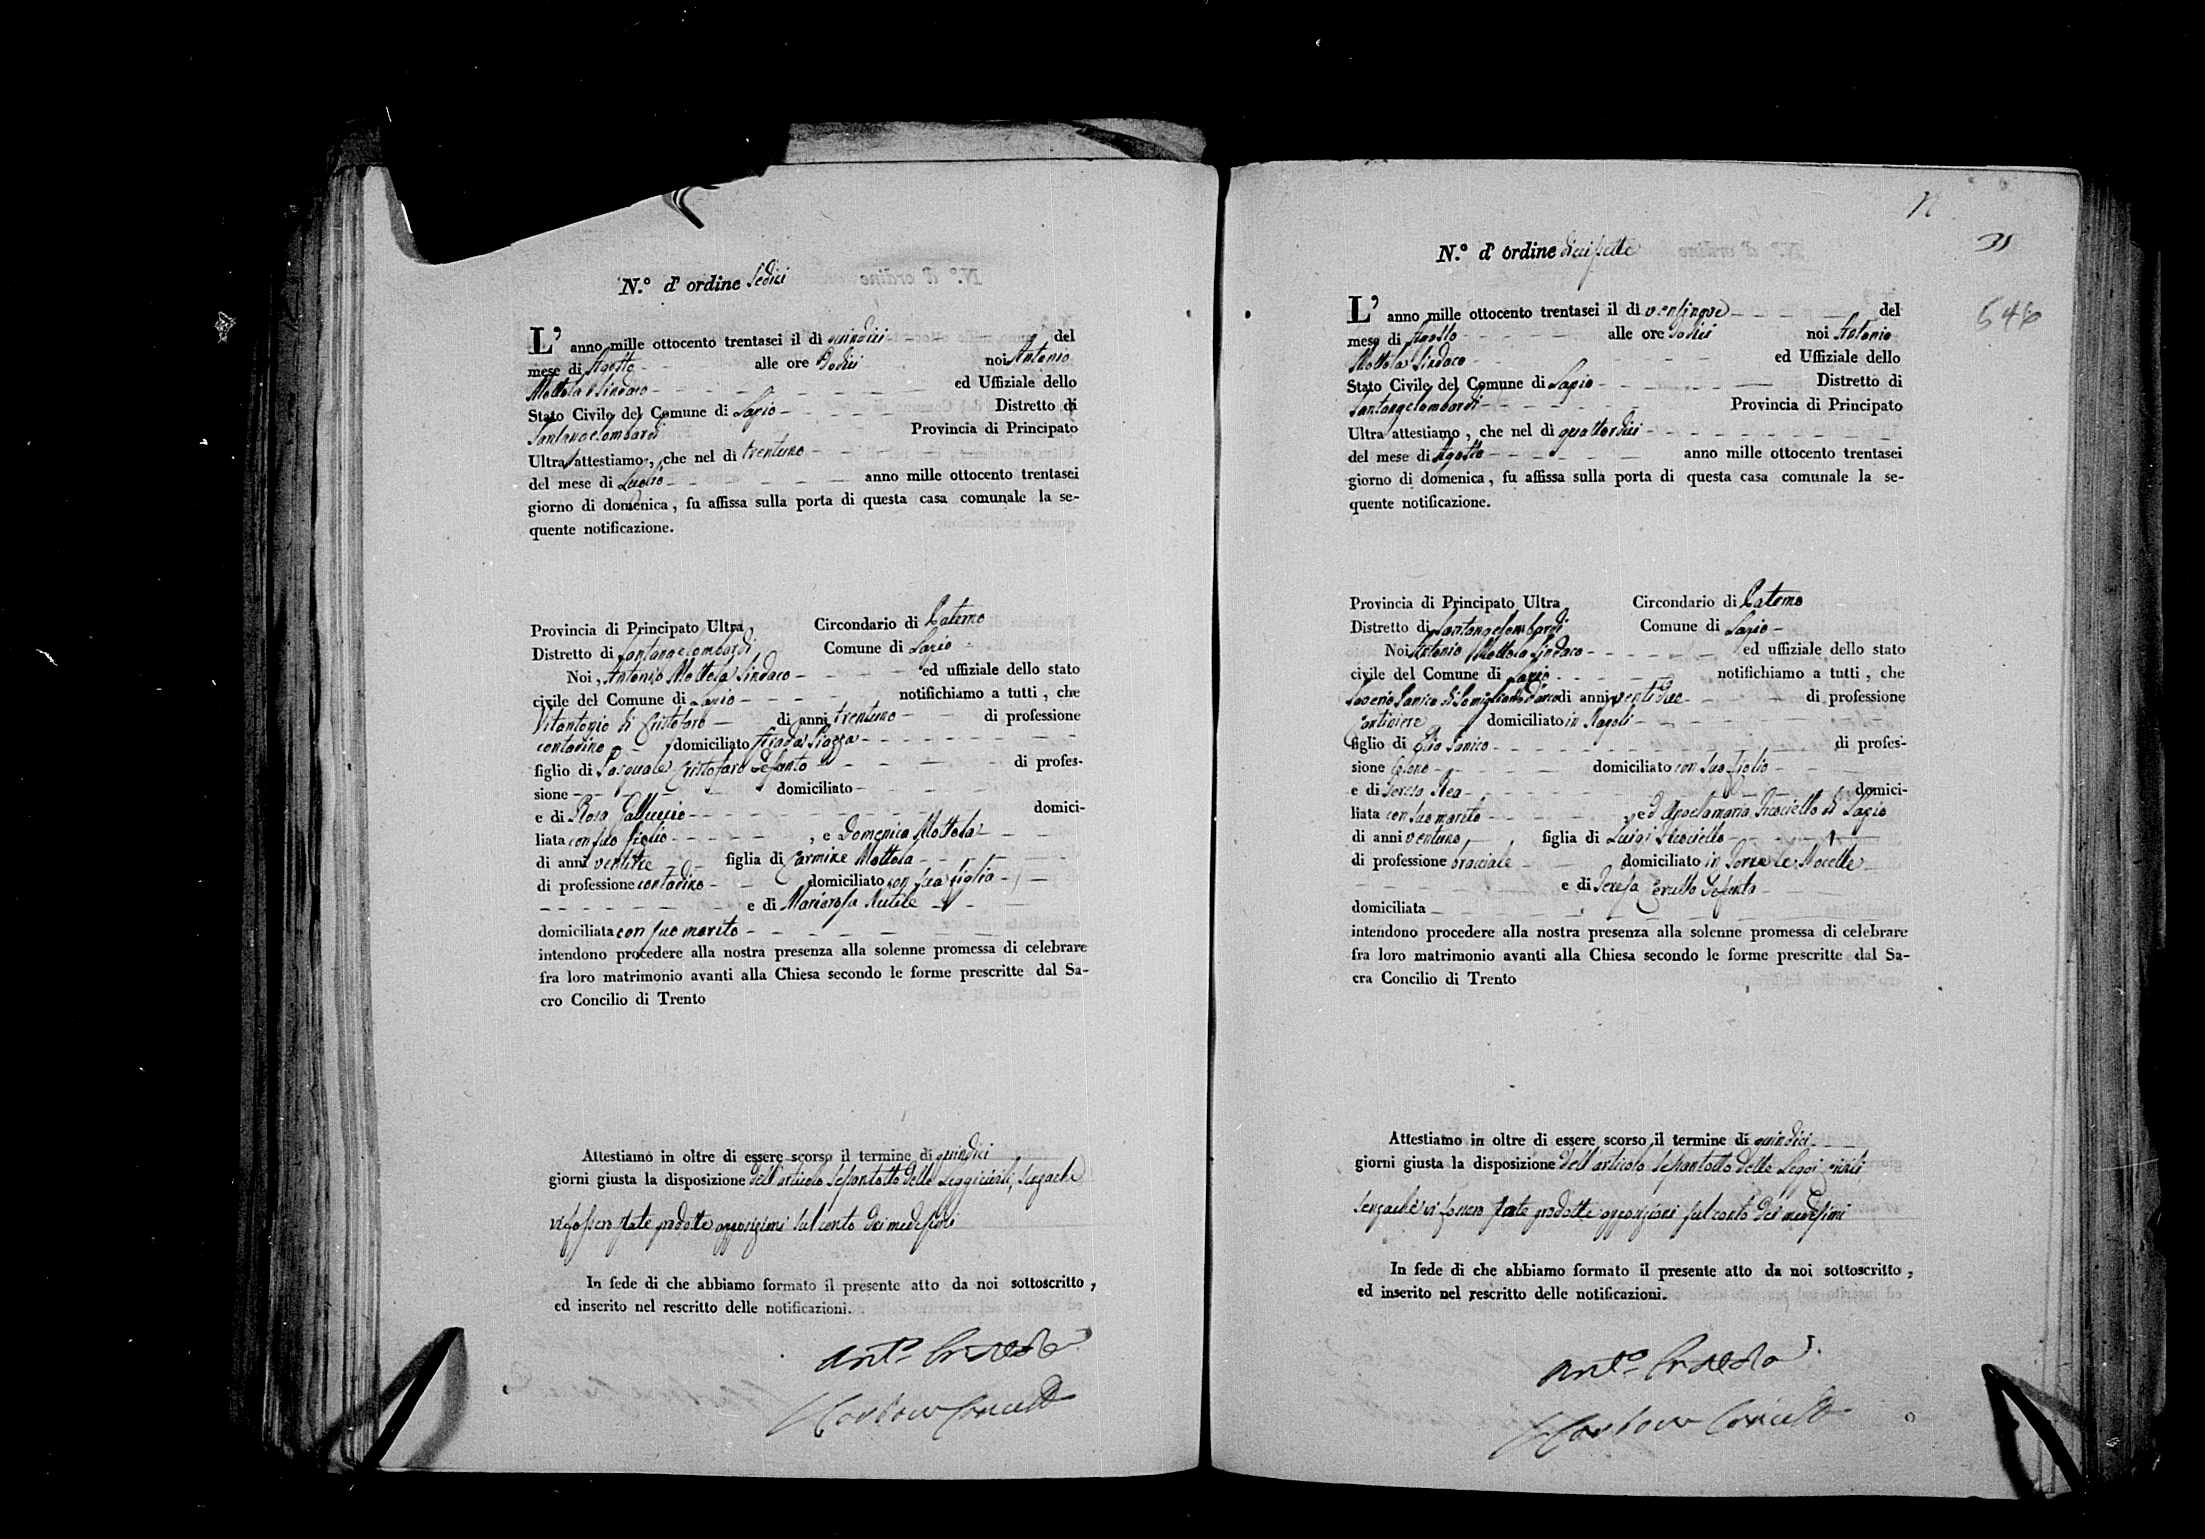 N.° d' ordine Sedici
L' anno mille ottocento trentasei il dì quindici del
mese di Agosto alle ore Dodici noi Antonio
Mottola Sindaco ed Uffiziale dello
Stato Civile del Comune di Lapio Distretto di
Santangelombardi Provincia di Principato
Ultra attestiamo, che nel dì trentuno
del mese di Luglio anno mille ottocento trentasei
giorno di domenica, fu affissa sulla porta di questa casa comunale la se-
quente notificazione.
Provincia di Principato Ultra, Circondario di Paterno
Distretto di Santangelombardi Comune di Lapio
Noi, Antonio Mottola Sindaco ed uffiziale dello stato
civile del Comune di Lapio notifichiamo a tutti, che
Vitantonio di Cristofaro di anni trentuno di professione
contadino domiciliato strada Piazza
figlio di Pasquale Cristofaro defunto di profes-
sione domiciliato
e di Rosa Galluccio domici-
liata con suo figlio, e Domenica Mottola
di anni ventitre figlia di Carmine Mottola
di professione contadino domiciliato con sua figlia
e di Mariarosa
domiciliata con suo marito
intendono procedere alla nostra presenza alla solenne promessa di celebrare
fra loro matrimonio avanti alla Chiesa secondo le forme prescritte dal Sa-
cro Concilio di Trento
Attestiamo in oltre di essere scorso il termine di quindici
giorni giusta la disposizione dell'articolo Sessantotto delle Leggi civili, senzache
vi fossero state prodotte opposizioni sul conto dei medesimi
In fede di che abbiamo formato il presente atto da noi sottoscritto,
ed inserito nel rescritto delle notificazioni.
Ant.°
31
N.° d' ordine diecisette
546
L' anno mille ottocento trentasei il dì ventinove del
mese di Agosto alle ore Dodici noi Antonio
Mottola Sindaco ed Uffiziale dello
Stato Civile del Comune di Lapio Distretto di
Santangelombardi Provincia di Principato
Ultra attestiamo, che nel dì quattordici
del mese di Agosto anno mille ottocento trentasei
giorno di domenica, fu affissa sulla porta di questa casa comunale la se-
quente notificazione.
Provincia di Principato Ultra Circondario di Paterno
Distretto di Santangelombardi Comune di Lapio
Noi Antonio Mottola Sindaco ed uffiziale dello stato
civile del Comune di Lapio notifichiamo a tutti, che
di anni ventidue di professione
domiciliato in Napoli
figlio di Elia di profes-
sione domiciliato con suo figlio
e di Teresa Rea domici-
liata con suo marito, ed di Lapio
di anni ventuno figlia di Luigi
di professione bracciale domiciliato in
e di Teresa defunta
domiciliata
intendono procedere alla nostra presenza alla solenne promessa di celebrare
fra loro matrimonio avanti alla Chiesa secondo le forme prescritte dal Sa-
cra Concilio di Trento
Attestiamo in oltre di essere scorso il termine di quindici
giorni giusta la disposizione dell'articolo Sessantotto delle Leggi civili,
senzache vi fossero state prodotte opposizioni sul conto dei medesimi
In fede di che abbiamo formato il presente atto da noi sottoscritto,
ed inserito nel rescritto delle notificazioni.
Ant.°